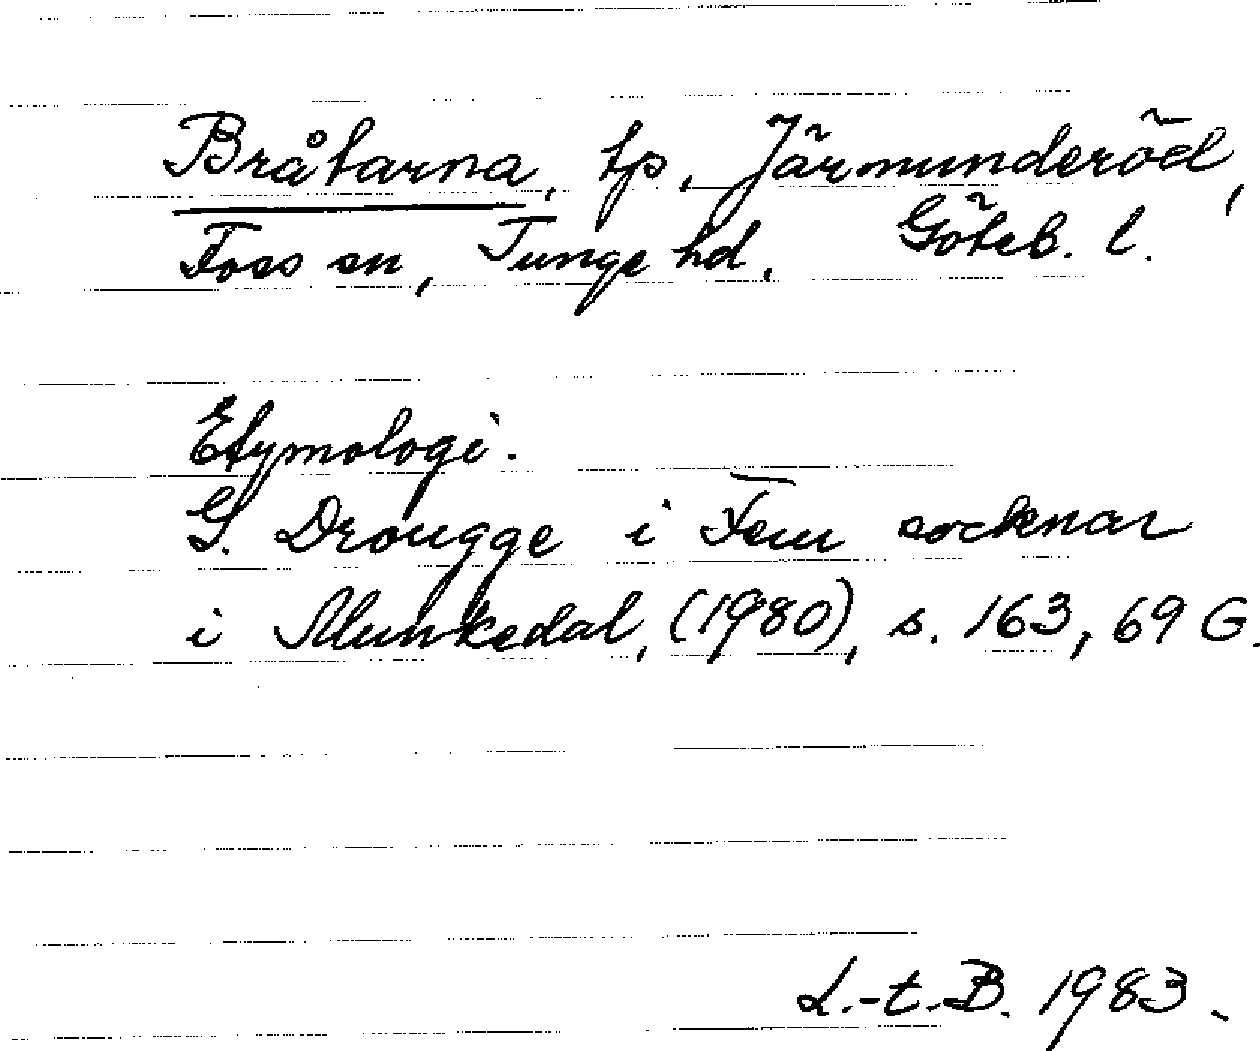 Bråtarna, tp, Järmunderöd,
Foss sn, Tunge hd, Göteb. l.
Etymologi.
G. Drougge i Fem socknar
i Munkedal, (1980), s. 163, 69 G.
L.-t.-B. 1983.